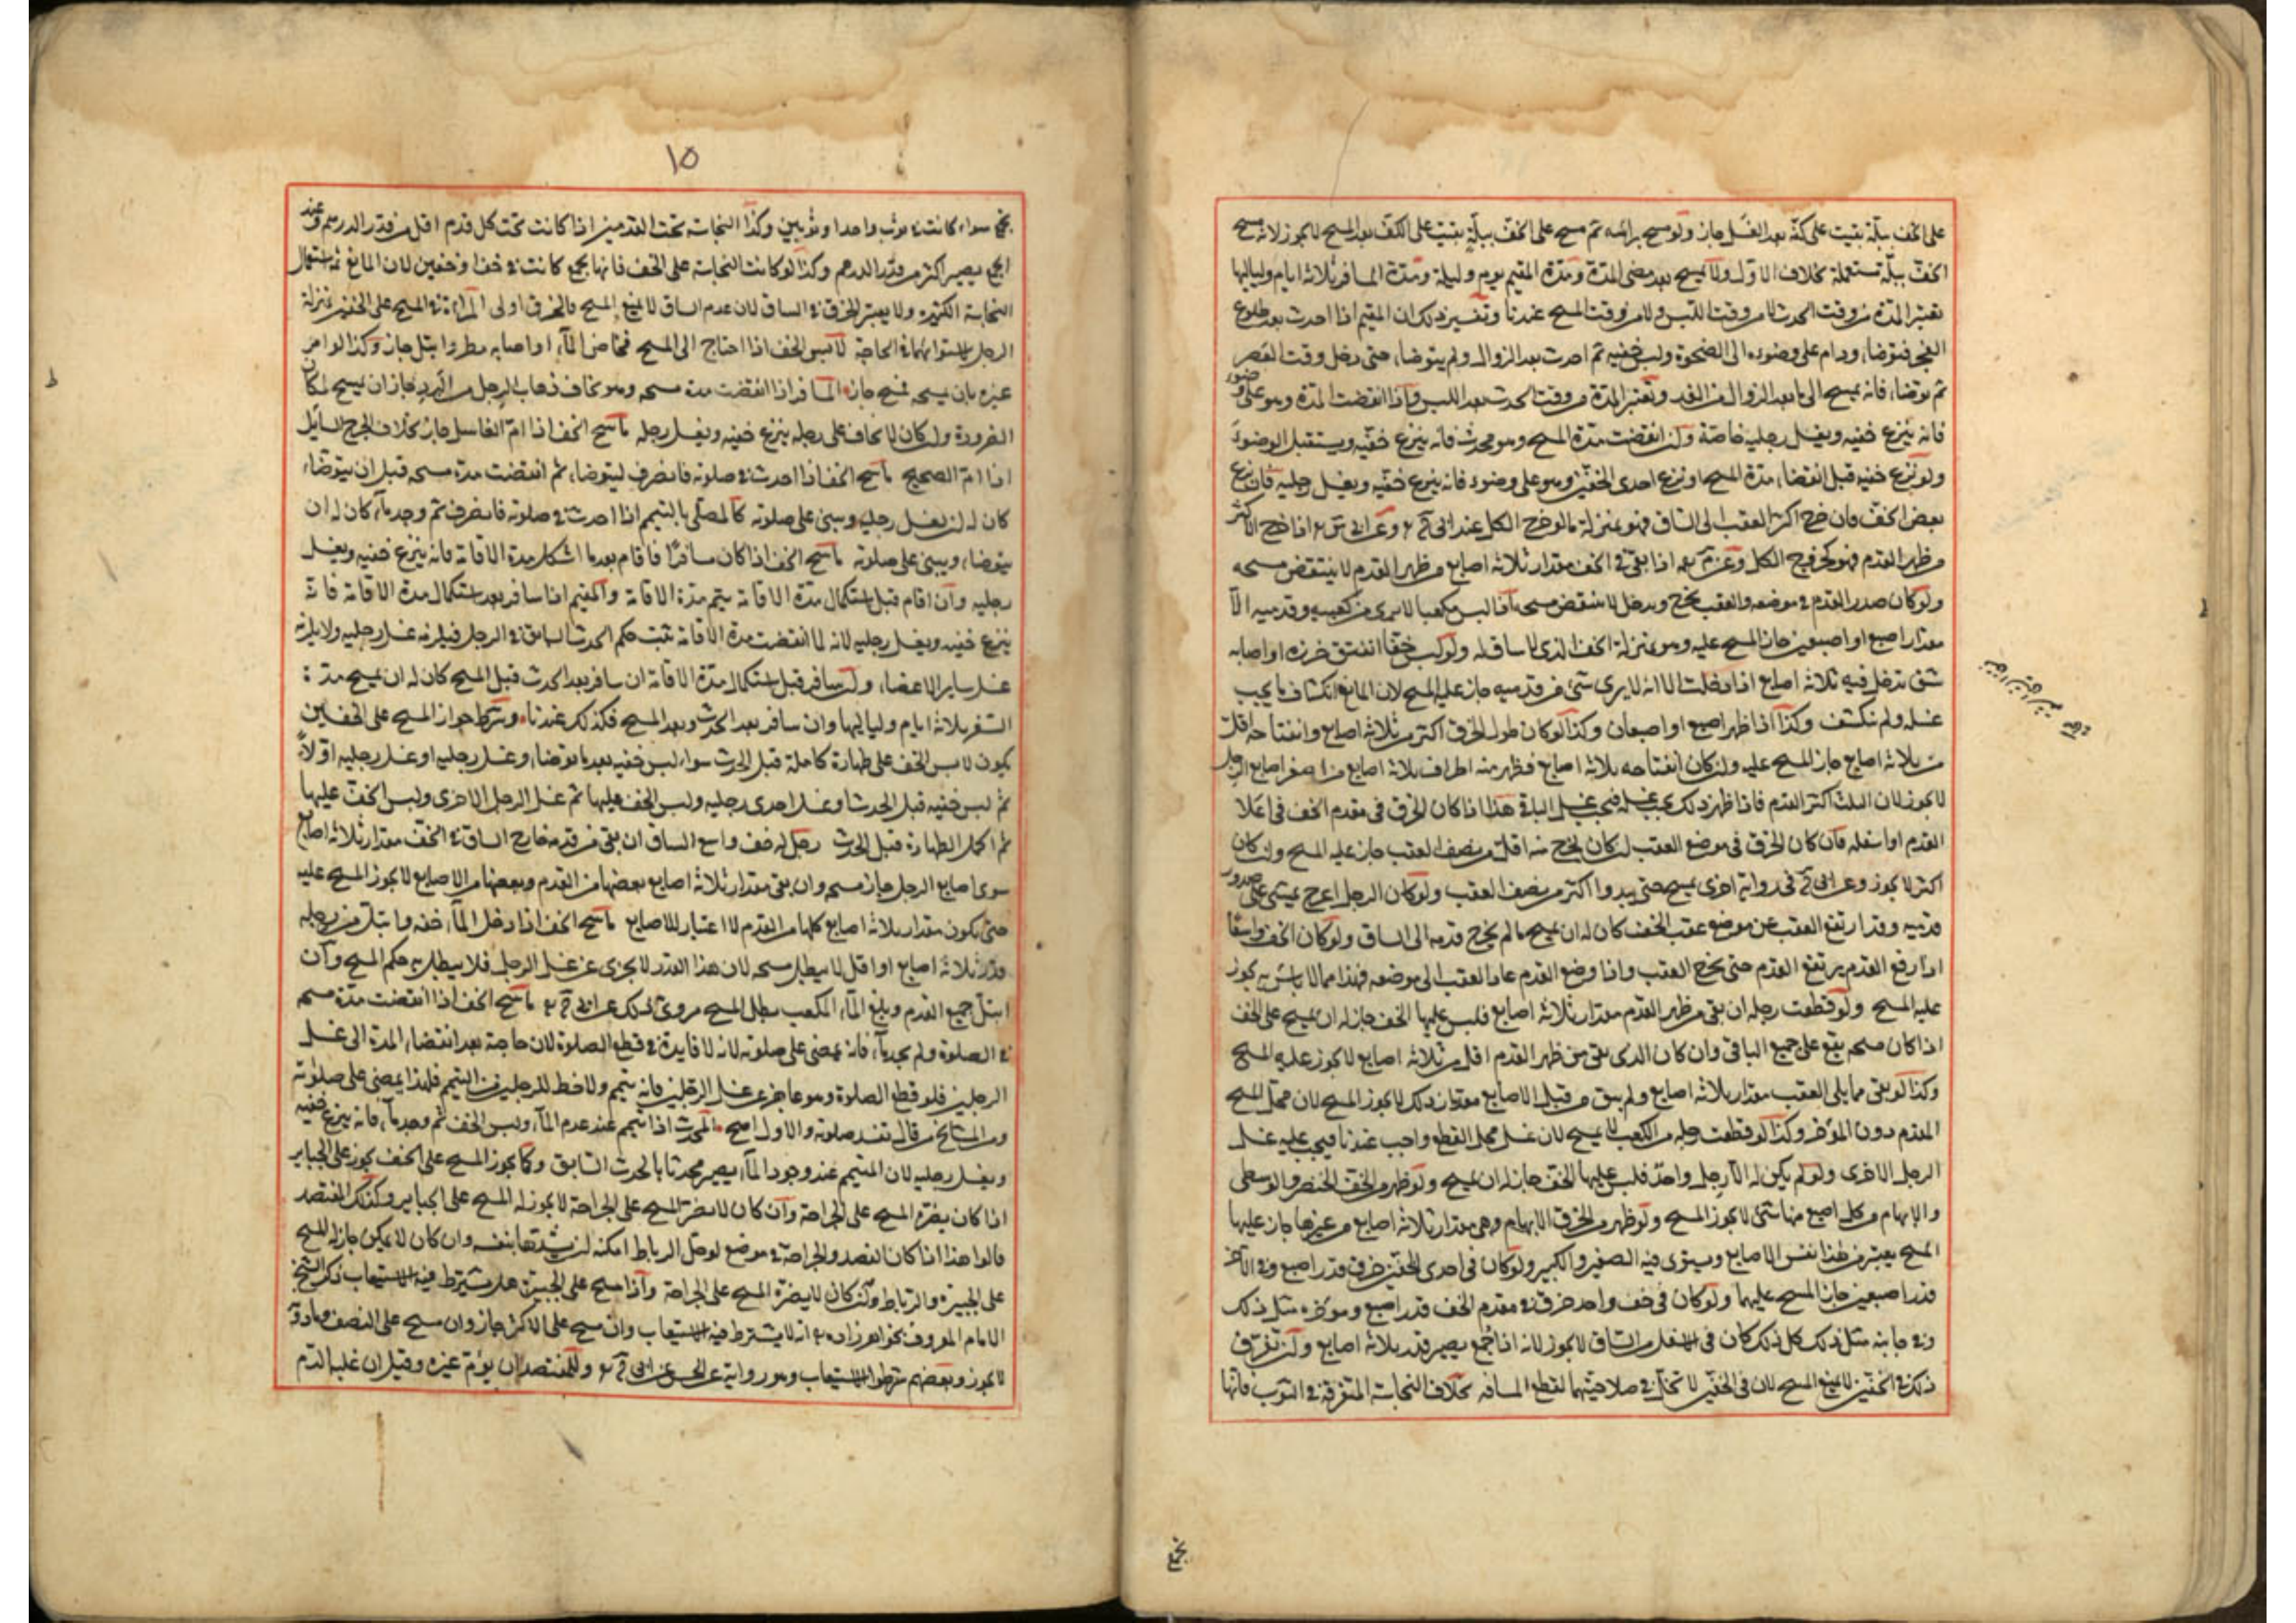 على الخف ببلّة بقيت على كفّه بعد الغسل جاز ولو مسح براسه ثم مسح على الخف ببلّة بقيت على الكف بعد المسح لا يجوز لانه مسح
الخف ببلّة مستعملة بخلاف الاول ولا يمسح بعد مضى المدة ومدة المقيم يوم وليلة ومدة المسافر ثلاثة ايام ولياليها
تعتبر المدة من وقت الحدث لا من وقت اللبس ولا من وقت المسح عندنا وتفسير ذلك ان المقيم اذا احدث بعد طلوع
الفجر فتوضا ودام على وضوءه الى الضحوة ولبس خفيه ثم احدث بعد الزوال ولم يتوضا حتى دخل وقت العصر
ثم توضا فانه يمسح الى ما بعد الزوال من الغد وتعتبر المدة من وقت الحدث بعد اللبس واذا انقضت المدة وهو على وضوء
فانه ينزع خفيه ويغسل رجليه خاصة وان انقضت مدة المسح وهو محدث فانه ينزع خفيه ويستقبل الوضوء
ولو نزع خفيه قبل انقضاء مدة المسح او نزع احدى الخفين وهو على وضوء فانه ينزع خفيه ويغسل رجليه فان نزع
بعض الخف فان خرج اكثر العقب الى الساق فهو بمنزلة ما لو خرج الكل عند ابى ح وعن ابى س اذا خرج الاكثر
من ظهر القدم فهو كخروج الكل وعن م اذا بقى فى الخف مقدار ثلاثة اصابع من ظهر القدم لا ينتقض مسحه
ولو كان صدر القدم فى موضعه والعقب يخرج ويدخل لا ينتقض مسحه اذا لبس مكعبا لا يرى من كعبيه وقدميه الا
مقدار اصبع او اصبعين جاز المسح عليه وهو بمنزلة الخف الذى لا ساق له ولو لبس خفا انفتق خرزه او اصابه
شق تدخل فيه ثلاثة اصابع اذا ادخلت الا انه لا يرى شئ من قدميه جاز عليه المسح لان المانع انكشاف ما يجب
غسله ولم ينكشف وكذا اذا ظهر اصبع او اصبعان وكذا لو كان طول الخرق اكثر من ثلاثة اصابع وانفتاحه اقل
من ثلاثة اصابع جاز المسح عليه وان كان انفتاحه ثلاثة اصابع فظهر منه اطراف ثلاثة اصابع من اصغر اصابع الرجل
لا يجوز لان الثلث اكثر القدم فاذا ظهر ذلك يجب غسله فيجب غسل الباقى هذا اذا كان الخرق فى مقدم الخف فى اعلا
القدم او اسفله فان كان الخرق فى موضع العقب ان كان يخرج منه اقل من نصف العقب جاز عليه المسح وان كان
اكثر لا يجوز وعن ابى ح فى رواية اخرى يمسح حتى يبدوا اكثر من نصف العقب ولو كان الرجل اعرج يمشى على صدور
قدميه وقد ارتفع العقب عن موضع عقب الخف كان له ان يمسح ما لم يخرج قدمه الى الساق ولو كان الخف واسعا
اذا رفع القدم يرتفع القدم حتى يخرج العقب واذا وضع القدم عاد العقب الى موضعه فهذا مما لا باس به يجوز
عليه المسح ولو قطعت رجله ان بقى من ظهر القدم مقدار ثلاثة اصابع فلبس عليها الخف جاز له ان يمسح على الخف
اذا كان مسحه يقع على جميع الباقى وان كان الذى بقى من ظهر القدم اقل من ثلاثة اصابع لا يجوز عليه المسح
وكذا لو بقى مما يلى العقب مقدار ثلاثة اصابع ولم يبق من قبل الاصابع مقدار ذلك لا يجوز المسح لان محل المسح
المقدم دون المؤخر وكذا لو قطعت رجله من الكعب لا يمسح لان غسل محل القطع واجب عندنا فيجب عليه غسل
الرجل الاخرى ولو لم يكن له الا رجل واحد فلبس عليها الخف جاز له ان يمسح ولو ظهر من الخف الخنصر والوسطى
والابهام من كل اصبع منها شئ لا يجوز المسح ولو ظهر من الخرق الابهام وهى مقدار ثلاثة اصابع من غيرها جاز عليها
المسح يعتبر فى هذا نفس الاصابع ويستوى فيه الصغير والكبير ولو كان فى احدى الخفين خرق قدر اصبع وفى الآخر
قدر اصبعين جاز المسح عليهما ولو كان فى خف واحد خرق فى مقدم الخف قدر اصبع وموخره مثل ذلك
وفى جانبه مثل ذلك كل ذلك كان فى اسفل من الساق لا يجوز لانه اذا جمع يصير قدر ثلاثة اصابع وان تفرق
ذلك فى الخفين لا يمنع المسح لان فى الخفين لا تخل فى صلاحيتهما لقطع المسافه بخلاف النجاسة المتفرقة فى الثوب فانها
تجمع
١٥
تجمع سواء كانت فى ثوب واحد او ثوبين وكذا النجاسة تحت القدمين اذا كانت تحت كل قدم اقل من قدر الدرهم وعند
الجمع يصير اكثر من قدر الدرهم وكذا لو كانت النجاسة على الخف فانها تجمع كانت فى خف او خفين لان المانع ثم استعمال
النجاسة الكثيرة ولا يعتبر الخرق فى الساق لان عدم الساق لا يمنع المسح فالخرق اولى المراة فى المسح على الخفين بمنزلة
الرجل لاستوائهما فى الحاجة لابس الخف اذا احتاج الى المسح فخاض الماء او اصابه مطر وابتل جاز وكذا لو امر
غيره بان يمسحه فمسح جاز المسافر اذا انقضت مدة مسحه وهو يخاف ذهاب الرجل من البرد جاز ان يمسح لمكان
الضرورة وان كان لا يخاف على رجله ينزع خفيه ويغسل رجله ماسح الخف اذا ام الغاسل جاز بخلاف الجرح السائل
اذا ام الصحيح ماسح الخف اذا احدث فى صلوته فانصرف ليتوضا ثم انقضت مدة مسحه قبل ان يتوضا
كان له ان يغسل رجليه ويبنى على صلوته كالمصلى بالتيمم اذا احدث فى صلوته فانصرف ثم وجد ماء كان له ان
يتوضا ويبنى على صلوته ماسح الخف اذا كان مسافرا فاقام بعد ما استكمل مدة الاقامة فانه ينزع خفيه ويغسل
رجليه وان اقام قبل استكمال مدة الاقامة يتم مدة الاقامة والمقيم اذا سافر بعد استكمال مدة الاقامة فانه
ينزع خفيه ويغسل رجليه لانه لما انقضت مدة الاقامة ثبت حكم الحدث السابق فى الرجل فيلزمه غسل رجليه ولا يلزمه
غسل ساير الاعضاء وان سافر قبل استكمال مدة الاقامة ان سافر بعد الحدث قبل المسح كان له ان يمسح مدة
السفر ثلاثة ايام ولياليها وان سافر بعد الحدث وبعد المسح فكذلك عندنا وشرط جواز المسح على الخفين
يكون لابس الخف على طهارة كاملة قبل الحدث سواء لبس خفيه بعد ما توضا وغسل رجليه او غسل رجليه اولاً
ثم لبس خفيه قبل الحدث او غسل احدى رجليه ولبس الخف عليها ثم غسل الرجل الاخرى ولبس الخف عليها
ثم اكمل الطهارة قبل الحدث رجل له خف واسع الساق ان بقى من قدمه خارج الساق فى الخف مقدار ثلاثة اصابع
سوى اصابع الرجل جاز مسحه وان بقى مقدار ثلاثة اصابع بعضها من القدم وبعضها من الاصابع لا يجوز المسح عليه
حتى يكون مقدار ثلاثة اصابع كلها من القدم لا اعتبار للاصابع ماسح الخف اذا دخل الماء خفه وابتل من رجله
قدر ثلاثة اصابع او اقل لا يبطل مسحه لان هذا القدر لا يجزى عن غسل الرجل فلا يبطل به حكم المسح وان
ابتل جميع القدم وبلغ الماء المكعب بطل المسح مروى ذلك عن ابى ح ماسح الخف اذا انقضت مدة مسحه
فى الصلوة ولم يجد ماء فانه يمضى على صلوته لانه لا فايدة فى قطع الصلوة لان حاجته بعد انقضاء المدة الى غسل
الرجلين فلو قطع الصلوة وهو عاجز عن غسل الرجلين فانه يتيمم ولا حظ للرجلين من التيمم فلهذا يمضى على صلوته
ومن المشايخ من قال تفسد صلوته والاول اصح المحدث اذا تيمم عند عدم الماء ولبس الخف ثم وجد ماء فانه ينزع خفيه
ويغسل رجليه لان المتيمم عند وجود الماء يصير محدثا بالحدث السابق وكما يجوز المسح على الخف يجوز على الجباير
اذا كان يضره المسح على الجراحة وان كان لا يضره المسح على الجراحة لا يجوز له المسح على الجباير وكذلك المفتصد
قالوا هذا اذا كان الفصد والجراحة فى موضع لو حل الرباط امكنه ان يشدها بنفسه وان كان لا يمكن جاز له المسح
على الجبيرة والرباط وان كان لا يضره المسح على الجراحة واذا مسح على الجبيرة هل يشترط فيه الاستيعاب ذكر الشيخ
الامام المعروف بخواهر زاده انه لا يشترط فيه الاستيعاب وان مسح على الاكثر جاز وان مسح على النصف وما دونه
لا يجوز وبعضهم شرطوا الاستيعاب وهو رواية عن الحسن عن ابى ح وللمفتصد ان يؤم غيره وقيل ان غلب الدم